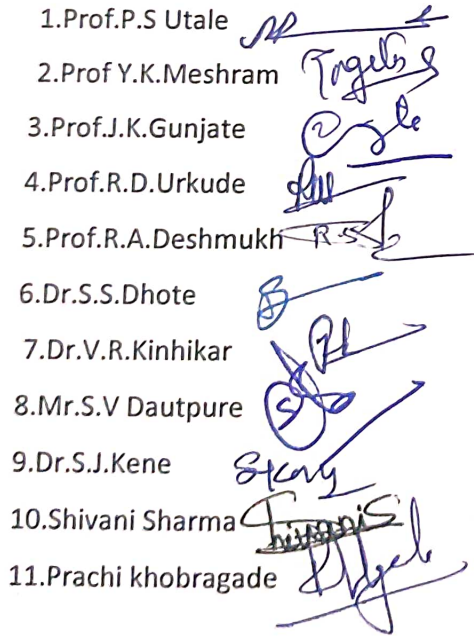 1.Prof.P.S Utale
2.Prof Y.K.Meshram
3.Prof.J.K.Gunjate
4.Prof.R.D.Urkude
5.Prof.R.A.Deshmukh
6.Dr.S.S.Dhote
7.Dr.V.R.Kinhikar
8.Mr.S.V Dautpure
9.Dr.S.J.Kene
10.Shivani Sharma ShivaniS
11.Prachi khobragade